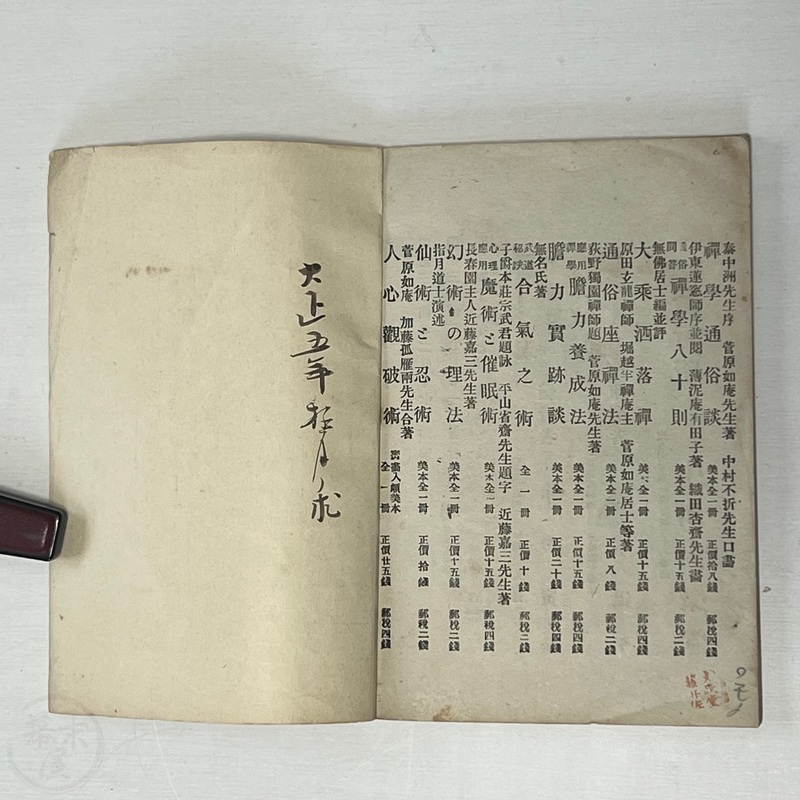 秦中洲先生序 菅原如庵先生著 中村不折先生口畵
禪學通俗談 美本全一冊 正價拾八錢 郵稅四錢
伊東蓮窓師序並閱 薄泥庵有田子著 織田杏齋先生畵
通俗問答禪學八十則 美本全一冊 正價十五錢 郵稅二錢
無佛居士編並評
大乘洒落禪 美本全一冊 正價十五錢 郵稅四錢
原田玄龍禪師 堀越半禪庵主 菅原如庵居士等著
通俗座禪法 美本全一冊 正價八錢 郵稅二錢
荻野獨園禪師題 菅原如庵先生著
應用禪學膽力養成法 美本全一冊 正價十五錢 郵稅四錢
膽力實跡談 美本全一冊 正價二十錢 郵稅四錢
無名氏著
武道秘訣合氣之術 全一冊 正價十錢 郵稅二錢
子爵本莊宗武君題詠 平山省齋先生題字 近藤嘉三先生著
心理應用魔術と催眠術 美本全一冊 正價十五錢 郵稅四錢
長春園主人近藤嘉三先生著
幻術の理法 美本全一冊 正價十五錢 郵稅二錢
指月道士演述
仙術と忍術 美本全一冊 正價拾錢 郵稅二錢
菅原如庵 加藤孤雁兩先生合著
人心觀破術 密畵入頗美本全一冊 正價廿五錢 郵稅四錢
大正五年 月 求